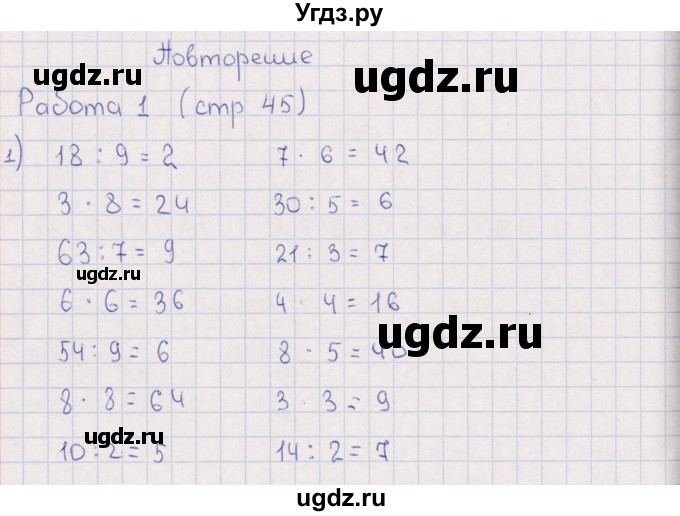 Угдз.ру
Повторение
ugdz.ru
ugdz.ru
Работа 1 (стр 45)
1) 18 : 9 = 2 7 · 6 = 42
3 · 8 = 24 30 : 5 = 6
63 : 7 = 9 21 : 3 = 7
ugdz.ru
6 · 6 = 36 4 · 4 = 16
ugdz.ru
54 : 9 = 6 8 · 5 = 40
8 · 8 = 64 3 · 3 = 9
ugdz.ru
10 : 2 = 5 14 : 2 = 7
ugdz.ru